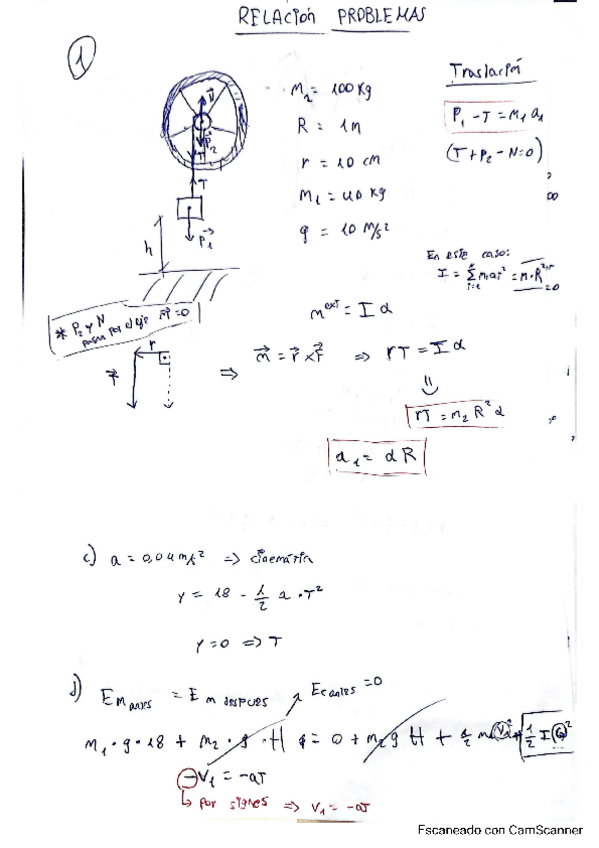 RELACIÓN PROBLEMAS
1
M₂ = 100 Kg
R = 1m
r = 10 cm
M₁ = 40 Kg
g = 10 m/s²
Traslación
P₁ - T = M₁ a₁
(T + P₂ - N = 0)
V
P₂
T
T
P₁
h
En este caso:
I = Σ mᵢ aᵢ² = m · R²
= 0
* P₂ y N
pasan por el eje M = 0
mᵉˣᵗ = I α
r
F
⇒ m = r × F ⇒ rT = I α
rT = m₂ R² α
a₁ = α R
c) a = 0,04 m/s² ⇒ cinemática
y = 18 - 1/2 a · T²
y = 0 ⇒ T
d) Em antes = Em después
Ec antes = 0
m₁ · g · 18 + m₂ · g · H = 0 + m₂ g H + 1/2 m V₁² + 1/2 I ω²
- V₁ = -aT
por signos ⇒ V₁ = -aT
Escaneado con CamScanner